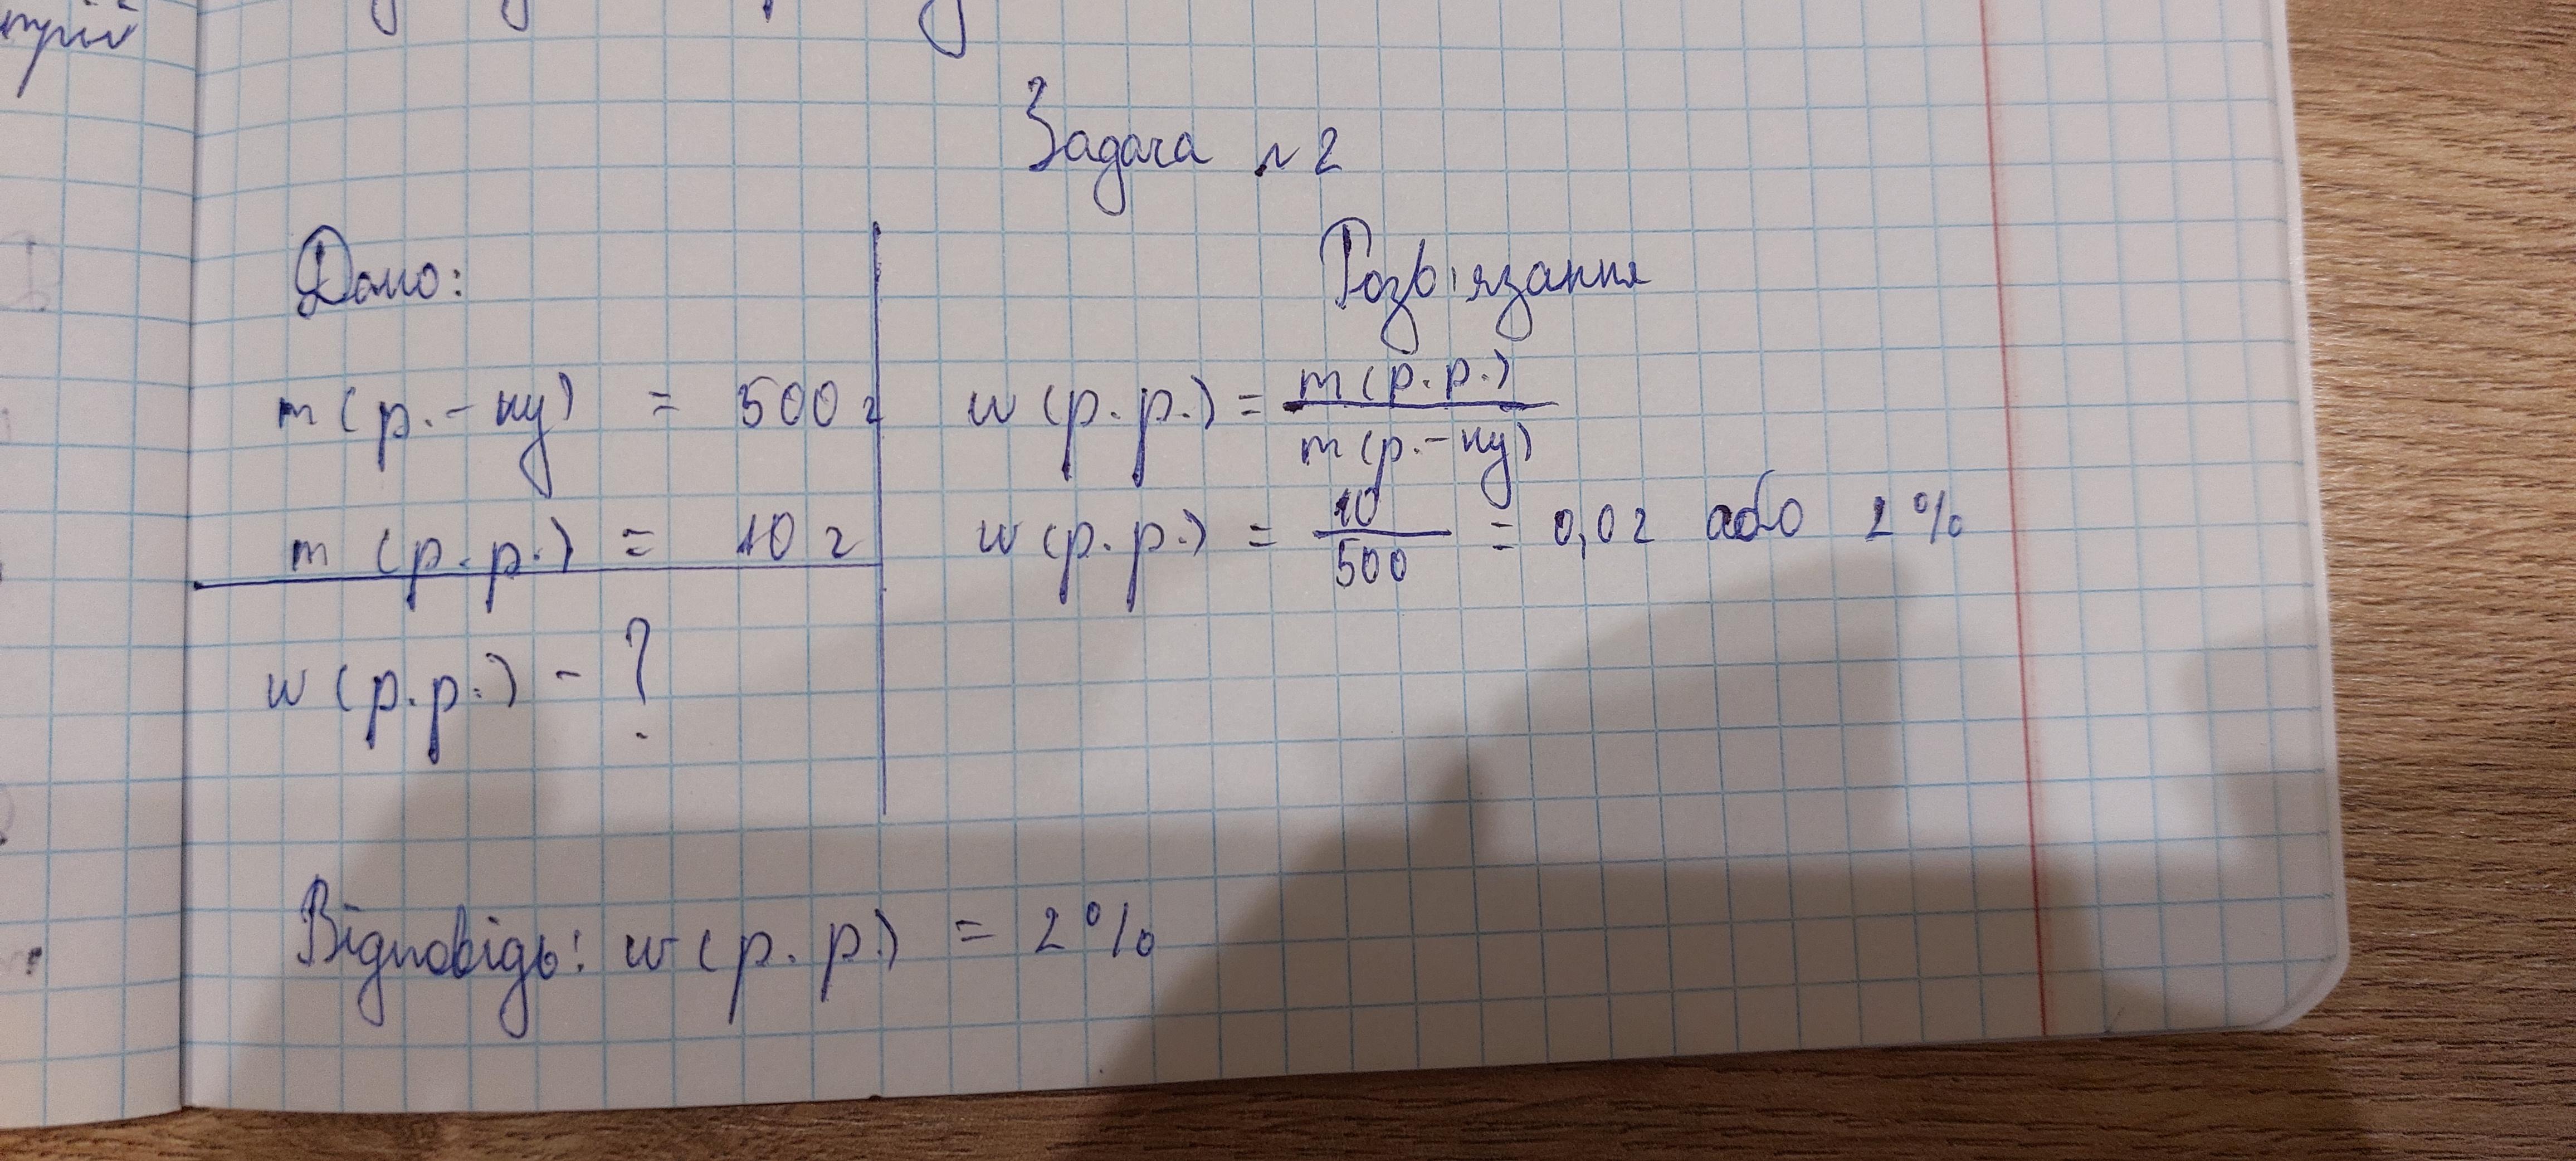 Задача №2
Дано:
m (р.-ну) = 500 г
m (р.р.) = 10 г
w (р.р.) - ?
Розв'язання
w (р.р.) = m (р.р.) / m (р.-ну)
w (р.р.) = 10 / 500 = 0,02 або 2 %
Відповідь: w (р.р.) = 2 %